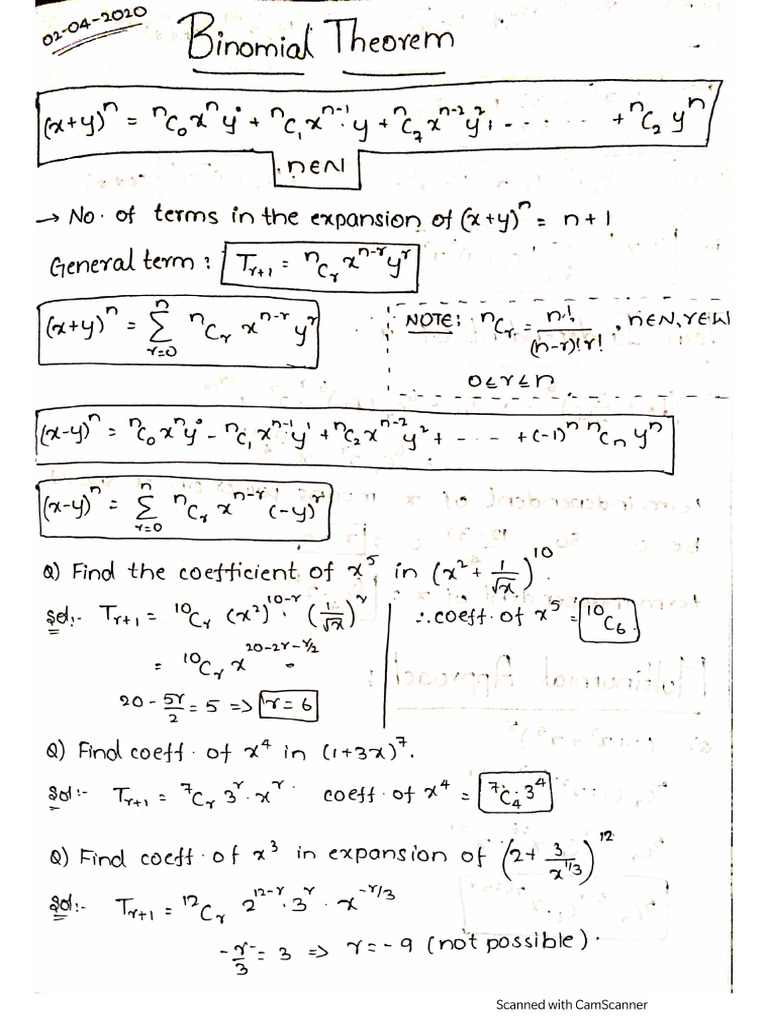 02-04-2020
Binomial Theorem
(x+y)ⁿ = ⁿC₀xⁿy⁰ + ⁿC₁xⁿ⁻¹·y + ⁿC₂xⁿ⁻²y²+ - · · · · · + ⁿC₂ yⁿ
n∈N
→ No. of terms in the expansion of (x+y)ⁿ = n+1
General term : Tᵣ₊₁ = ⁿCᵣ xⁿ⁻ʳyʳ
(x+y)ⁿ = Σ_{r=0}^{n} ⁿCᵣ xⁿ⁻ʳ yʳ
NOTE: ⁿCᵣ = n!/(n-r)!r! , n∈N, r∈W
0≤r≤n
(x-y)ⁿ = ⁿC₀xⁿy⁰ - ⁿC₁xⁿ⁻¹y¹ + ⁿC₂xⁿ⁻²y² + - · - - + (-1)ⁿ ⁿCₙ yⁿ
(x-y)ⁿ = Σ_{r=0}^{n} ⁿCᵣ xⁿ⁻ʳ (-y)ʳ
Q) Find the coefficient of x⁵ in (x² + 1/√x)¹⁰.
Sol:- Tᵣ₊₁ = ¹⁰Cᵣ (x²)¹⁰⁻ʳ · (1/√x)ʳ
= ¹⁰Cᵣ x^{20-2r-r/2}
20 - 5r/2 = 5 => r = 6
∴ coeff. of x⁵ = ¹⁰C₆
Q) Find coeff. of x⁴ in (1+3x)⁷.
Sol:- Tᵣ₊₁ = ⁷Cᵣ 3ʳ · xʳ coeff. of x⁴ = ⁷C₄ 3⁴
Q) Find coeff. of x³ in expansion of (2 + 3/x^{1/3})¹²
Sol:- Tᵣ₊₁ = ¹²Cᵣ 2¹²⁻ʳ · 3ʳ · x^{-r/3}
-r/3 = 3 => r = -9 (not possible).
Scanned with CamScanner